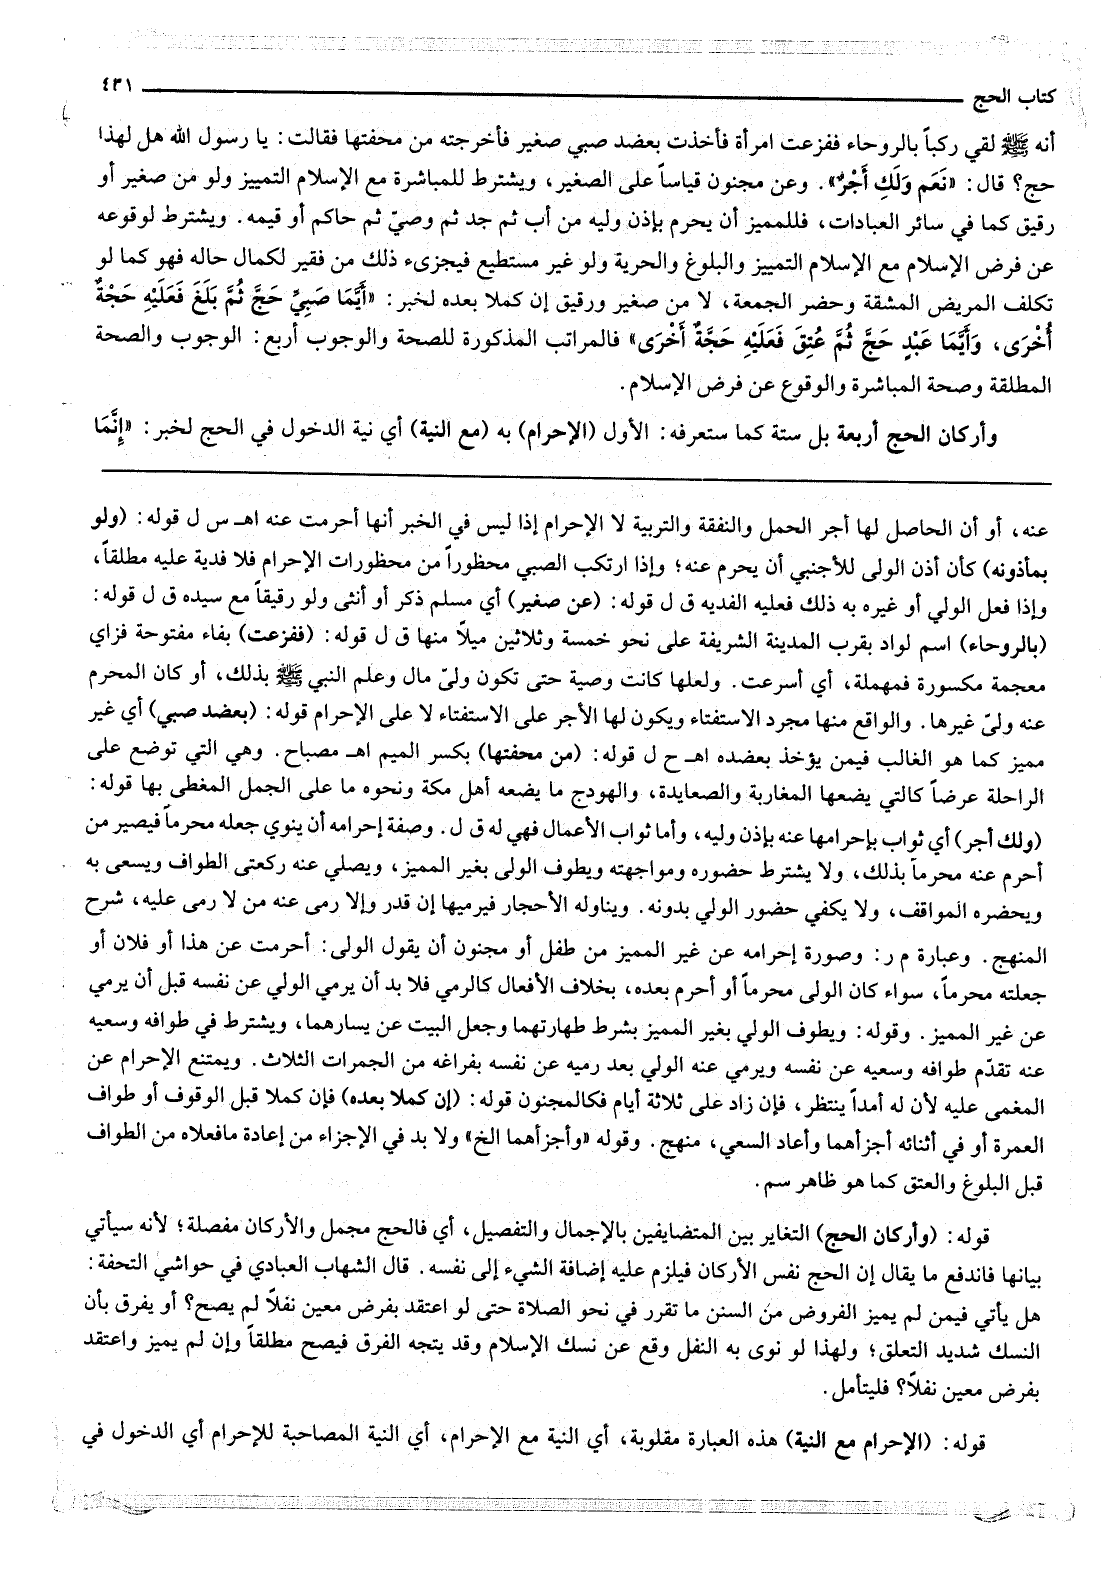 كتاب الحج ٤٣١
أنه ﷺ لقي ركباً بالروحاء ففزعت امرأة فأخذت بعضد صبي صغير فأخرجته من محفتها فقالت: يا رسول الله هل لهذا
حج؟ قال: «نَعَم وَلَكِ أَجْرٌ». وعن مجنون قياساً على الصغير، ويشترط للمباشرة مع الإسلام التمييز ولو من صغير أو
رقيق كما في سائر العبادات، فللمميز أن يحرم بإذن وليه من أب ثم جد ثم وصيّ ثم حاكم أو قيمه. ويشترط لوقوعه
عن فرض الإسلام مع الإسلام التمييز والبلوغ والحرية ولو غير مستطيع فيجزىء ذلك من فقير لكمال حاله فهو كما لو
تكلف المريض المشقة وحضر الجمعة، لا من صغير ورقيق إن كملا بعده لخبر: «أَيَّمَا صَبِيٍّ حَجَّ ثُمَّ بَلَغَ فَعَلَيْهِ حَجَّةٌ
أُخْرَى، وَأَيَّمَا عَبْدٍ حَجَّ ثُمَّ عُتِقَ فَعَلَيْهِ حَجَّةٌ أُخْرَى» فالمراتب المذكورة للصحة والوجوب أربع: الوجوب والصحة
المطلقة وصحة المباشرة والوقوع عن فرض الإسلام.
وأركان الحج أربعة بل ستة كما ستعرفه: الأول (الإحرام) به (مع النية) أي نية الدخول في الحج لخبر: «إِنَّمَا
عنه، أو أن الحاصل لها أجر الحمل والنفقة والتربية لا الإحرام إذا ليس في الخبر أنها أحرمت عنه اهـ س ل قوله: (ولو
بمأذونه) كأن أذن الولى للأجنبي أن يحرم عنه؛ وإذا ارتكب الصبي محظوراً من محظورات الإحرام فلا فدية عليه مطلقاً،
وإذا فعل الولي أو غيره به ذلك فعليه الفديه ق ل قوله: (عن صغير) أي مسلم ذكر أو أنثى ولو رقيقاً مع سيده ق ل قوله:
(بالروحاء) اسم لواد بقرب المدينة الشريفة على نحو خمسة وثلاثين ميلاً منها ق ل قوله: (ففزعت) بفاء مفتوحة فزاي
معجمة مكسورة فمهملة، أي أسرعت. ولعلها كانت وصية حتى تكون وليّ مال وعلم النبي ﷺ بذلك، أو كان المحرم
عنه وليّ غيرها. والواقع منها مجرد الاستفتاء ويكون لها الأجر على الاستفتاء لا على الإحرام قوله: (بعضد صبي) أي غير
مميز كما هو الغالب فيمن يؤخذ بعضده اهـ ح ل قوله: (من محفتها) بكسر الميم اهـ مصباح. وهي التي توضع على
الراحلة عرضاً كالتي يضعها المغاربة والصعايدة، والهودج ما يضعه أهل مكة ونحوه ما على الجمل المغطى بها قوله:
(ولك أجر) أي ثواب بإحرامها عنه بإذن وليه، وأما ثواب الأعمال فهي له ق ل. وصفة إحرامه أن ينوي جعله محرماً فيصير من
أحرم عنه محرماً بذلك، ولا يشترط حضوره ومواجهته ويطوف الولى بغير المميز، ويصلي عنه ركعتى الطواف ويسعى به
ويحضره المواقف، ولا يكفي حضور الولي بدونه. ويناوله الأحجار فيرميها إن قدر وإلا رمى عنه من لا رمى عليه، شرح
المنهج. وعبارة م ر: وصورة إحرامه عن غير المميز من طفل أو مجنون أن يقول الولى: أحرمت عن هذا أو فلان أو
جعلته محرماً، سواء كان الولى محرماً أو أحرم بعده، بخلاف الأفعال كالرمي فلا بد أن يرمي الولي عن نفسه قبل أن يرمي
عن غير المميز. وقوله: ويطوف الولي بغير المميز بشرط طهارتهما وجعل البيت عن يسارهما، ويشترط في طوافه وسعيه
عنه تقدّم طوافه وسعيه عن نفسه ويرمي عنه الولي بعد رميه عن نفسه بفراغه من الجمرات الثلاث. ويمتنع الإحرام عن
المغمى عليه لأن له أمداً ينتظر، فإن زاد على ثلاثة أيام فكالمجنون قوله: (إن كملا بعده) فإن كملا قبل الوقوف أو طواف
العمرة أو في أثنائه أجزأهما وأعاد السعي، منهج. وقوله «وأجزأهما الخ» ولا بد في الإجزاء من إعادة مافعلاه من الطواف
قبل البلوغ والعتق كما هو ظاهر سم.
قوله: (وأركان الحج) التغاير بين المتضايفين بالإجمال والتفصيل، أي فالحج مجمل والأركان مفصلة؛ لأنه سيأتي
بيانها فاندفع ما يقال إن الحج نفس الأركان فيلزم عليه إضافة الشيء إلى نفسه. قال الشهاب العبادي في حواشي التحفة:
هل يأتي فيمن لم يميز الفروض من السنن ما تقرر في نحو الصلاة حتى لو اعتقد بفرض معين نفلاً لم يصح؟ أو يفرق بأن
النسك شديد التعلق؛ ولهذا لو نوى به النفل وقع عن نسك الإسلام وقد يتجه الفرق فيصح مطلقاً وإن لم يميز واعتقد
بفرض معين نفلاً؟ فليتأمل.
قوله: (الإحرام مع النية) هذه العبارة مقلوبة، أي النية مع الإحرام، أي النية المصاحبة للإحرام أي الدخول في